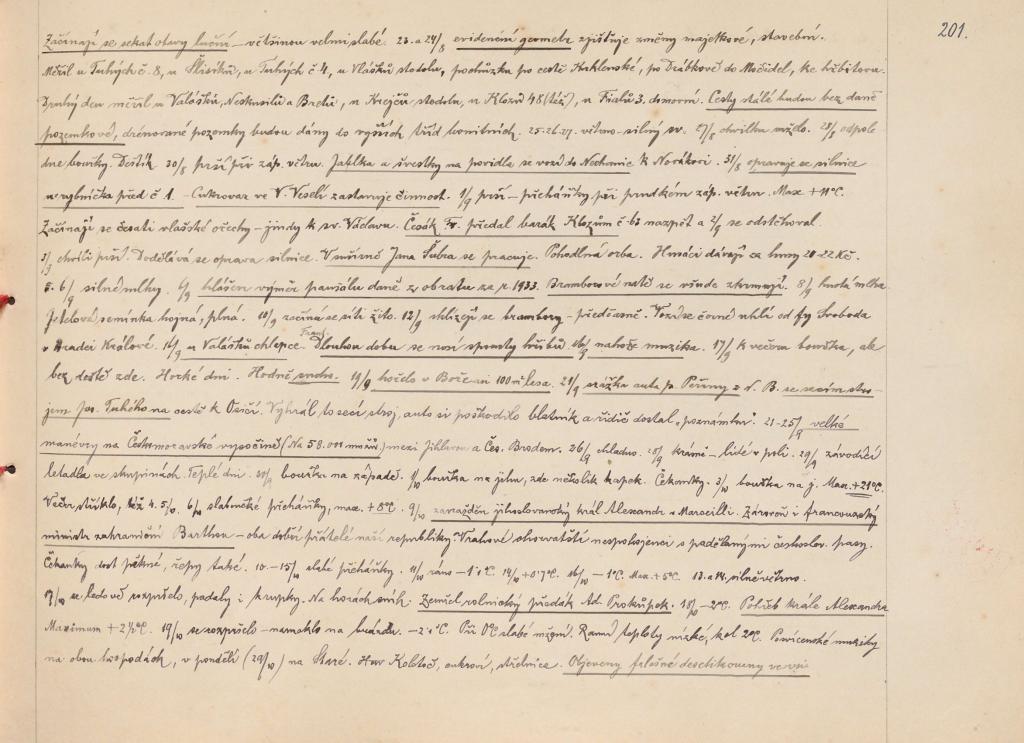 201.
Začínají se sekat otavy luční – většinou velmi slabé. 23. a 24/8 evidenční geometr zjišťuje změny majetkové, stavební.
Měřil u Tuhých č. 8, u Šlisiků, u Tuhých č 4, u Vlášků stodolu, pochůzka po cestě Kuklenské, po Drábkově do Močidel, ke hřbitovu.
Druhý den měřil u Valášků, Neskusilů a Breti, u Krejčů stodolu, u Klozů 48 (též), u Fialů 3. domovní. Cesty stálé budou bez daně
pozemkové, drénované pozemky budou dány do vyšších tříd bonitních. 25.26.27. větrno – silný sv. 27/8 chvilku mžilo. 28/8 odpole
dne bouřky. Deštík 30/8 prší při záp. větru. Jablka a švestky na povidla se vozí do Nechanic k Novákovi. 31/8 opravuje se silnice
u rybníčka před č 1. – Cukrovar ve V. Veselí zastavuje činnost. 1/9 prší – přeháňky při prudkém záp. větru. Max +11°C.
Začínají se česati vlašské ořechy – jindy k sv. Václavu. Česák Fr. předal barák Klozům č 63 nazpět a 2/9 se odstěhoval.
3/9 chvíli prší. Dodělává se oprava silnice. V sušírně Jana Šubra se pracuje. Pohodlná orba. Hnsáci dávají za husy 20-22 Kč.
5. 6/9 silné mlhy. 6/9 hlášen výměr paušálu daně z obratu za r. 1933. Bramborové natě se všude zkrmují. 8/9 hustá mlha
Jetelová semínka hojná, plná. 10/9 začíná se síti žito. 12/9 sklízejí se brambory – předčasně. Vozí se černé uhlí od fy Svoboda
v Hradci Králové. 14/9 u Valášků chlapec Frant. Dlouhou dobu se nosí spousty hřibů 16/9 u Nahože muzika. 17/9 k večeru bouřka, ale
bez deště zde. Horké dni. Hodně sucho. 19/9 hořelo v Boře asi 100 m² lesa. 21/9 srážka auta p. Peřiny z N. B. se secím stro-
jem Jos. Tuhého na cestě k Osicí. Vyhrál to secí stroj, auto si poškodilo blatník a řidič dostal „poznámku". 21-25/9 velké
manévry na Českomoravské vysočině (Na 58.000 mužů) mezi Jihlavou a Čes. Brodem. 26/9 chladno. 28/9 krásné – lidé v poli. 29/9 závodící
letadla ve skupinách. Teplé dni. 30/9 bouřka na západě. 1/10 bouřka na jihu, zde několik kapek. Čekanky. 3/10 bouřka na j. Max. +21°C.
Večer stříklo, též 4. 5/10. 6/10 slabounké přeháňky, max. +8°C. 9/10 zavražděn jihoslovanský král Alexandr v Marseilli. Zároveň i francouzský
ministr zahraniční Barthou – oba dobří přátelé naší republiky. Vrahové chorvatští nespokojenci s padělanými českoslov. pasy.
Čekanky dost pěkné, řepy také. 10. – 15/10 slabé přeháňky. 11/10 ráno –1·1°C. 14/10 +0·7°C. 16/10 –1°C. Max. +5°C. 13. a 14. silně větrno.
17/10 se ledově rozpršelo, padaly i krupky. Na horách sníh. Zemřel rolnický předák Ad. Prokůpek. 18/10 –2°C. Pohřeb krále Alexandra
Maximum +2½°C. 19/10 se rozpršelo – namoklo na brázdu. –2·1°C. Při 0°C slabé mžení. Ranní teploty nízké, kol 2°C. Posvícenské muziky
na obou hospodách, v pondělí (29/10) na Staré. Hav Kolotoč, cukroví, střelnice. Objeveny falešné desetikoruny ve vsi